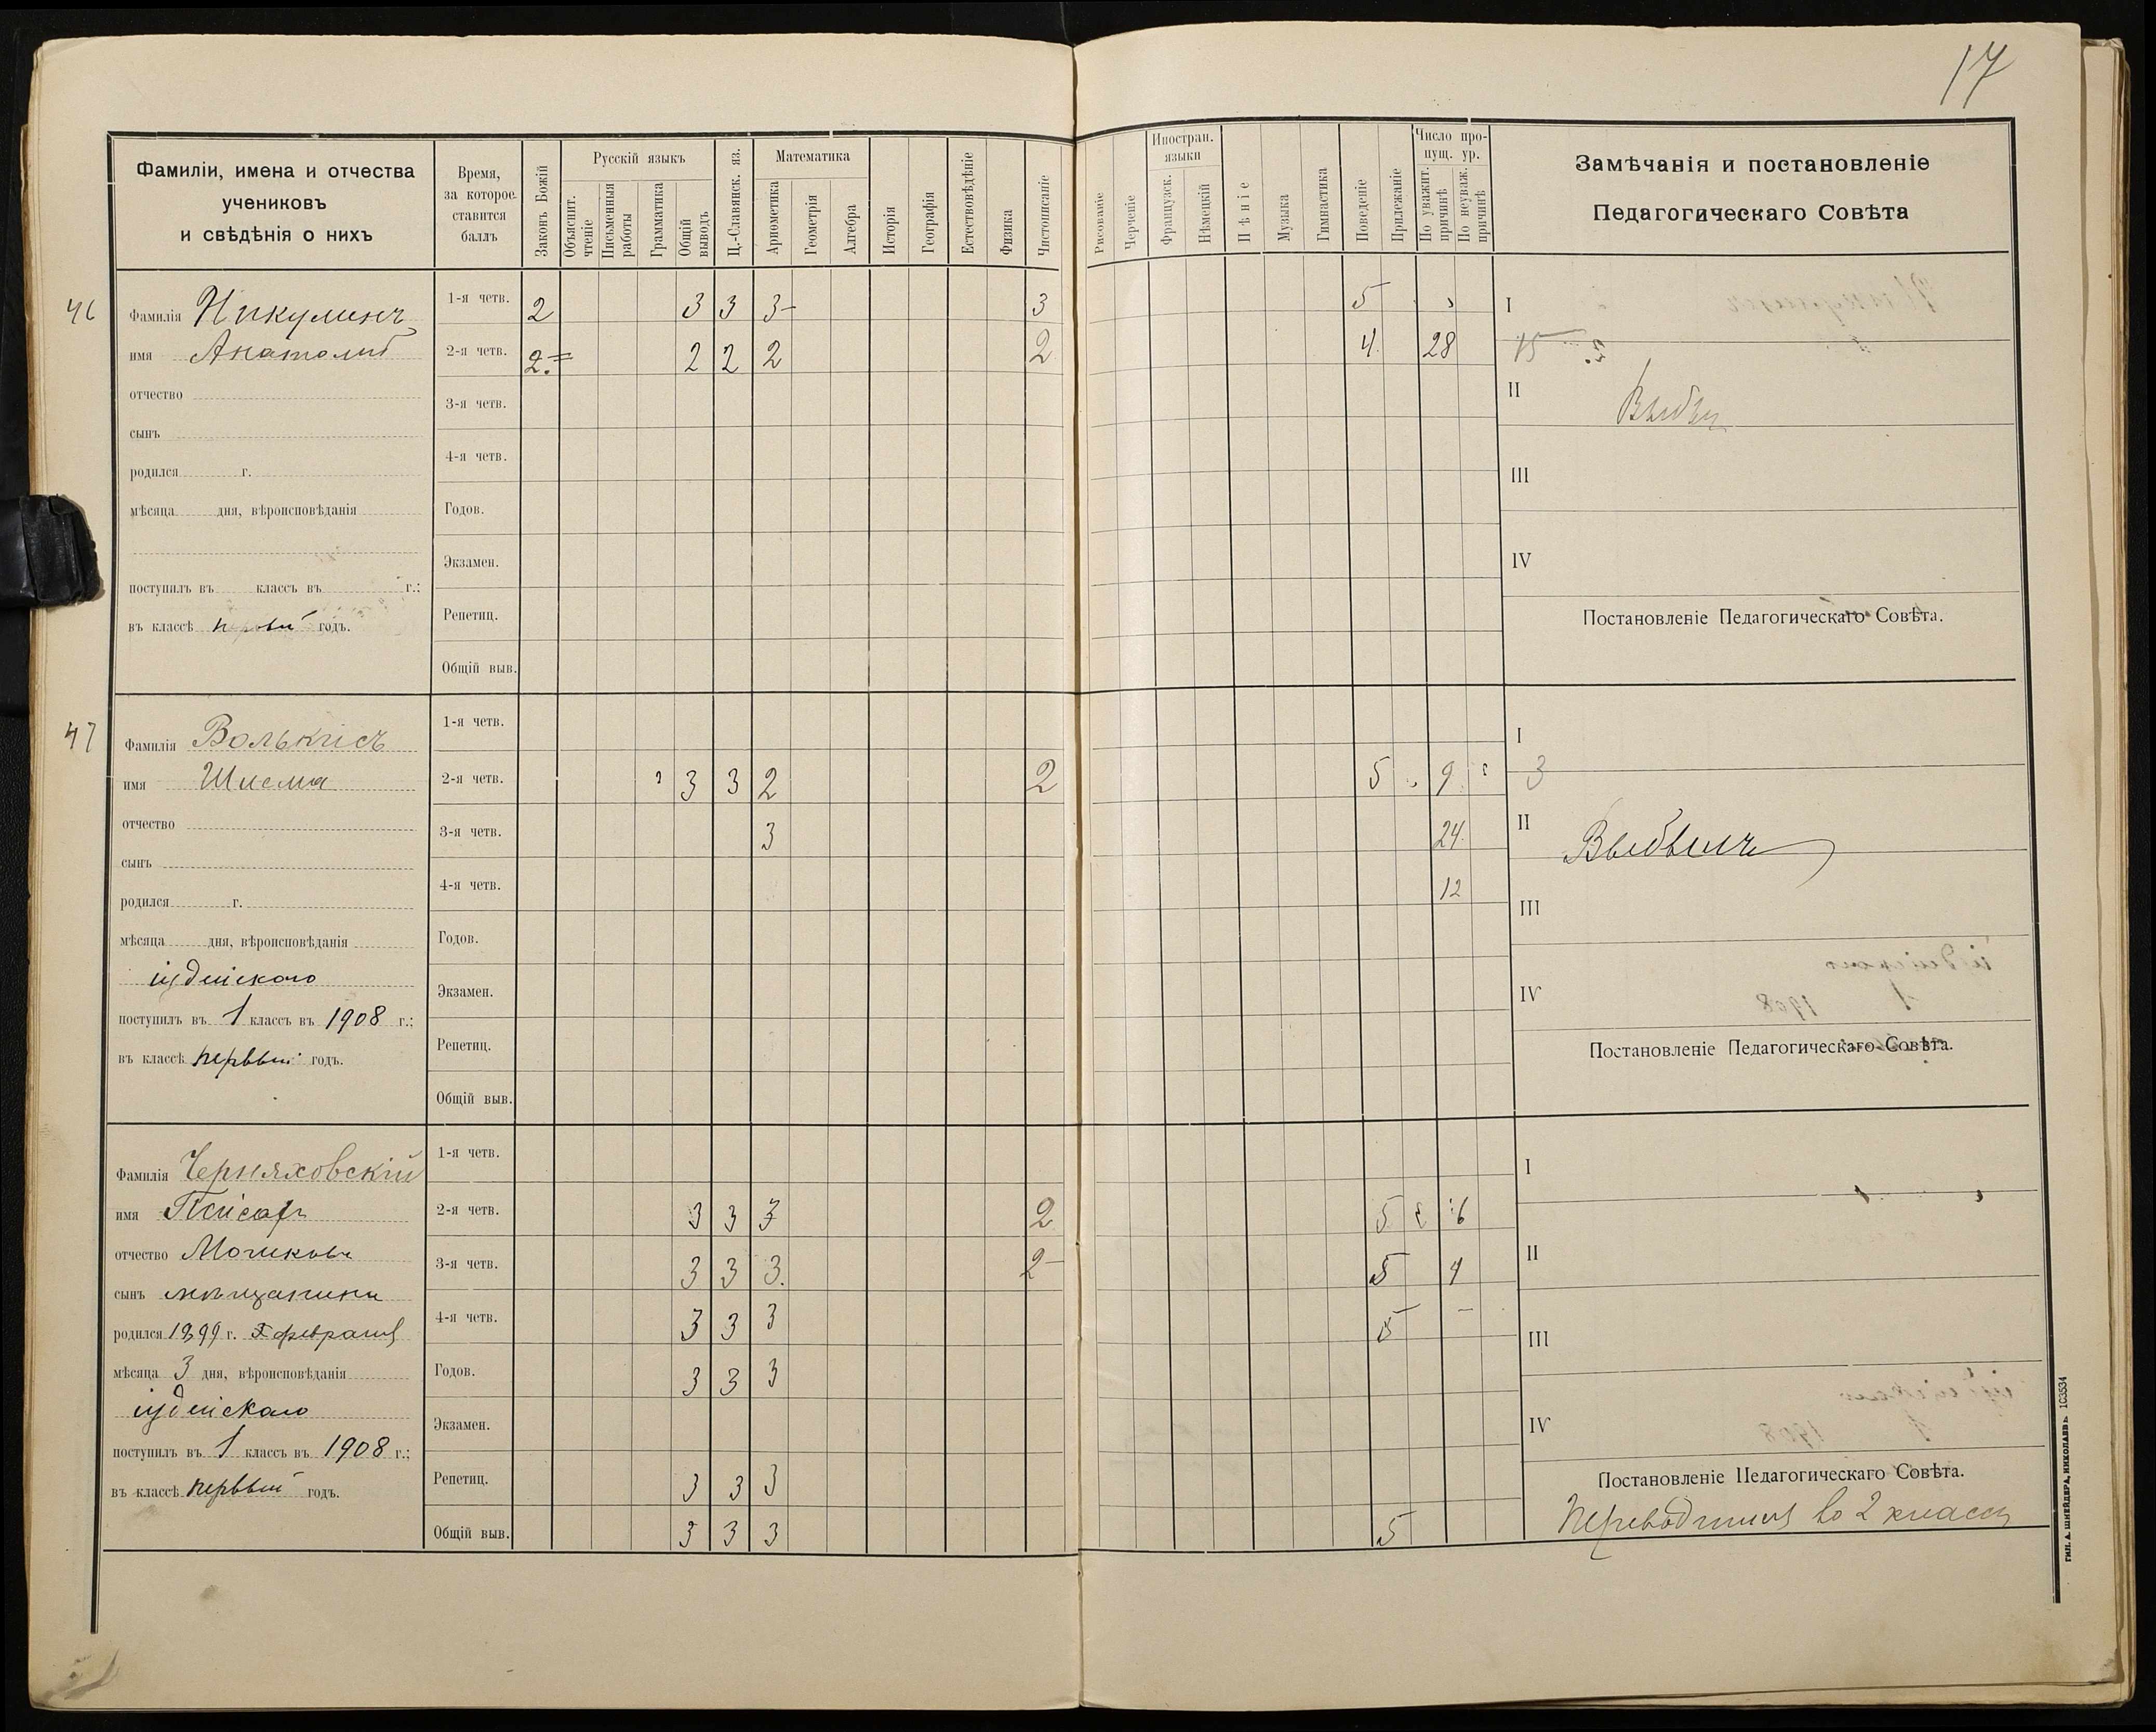 17
Фамиліи, имена и отчества
учениковъ
и свѣдѣнія о нихъ
Время,
за которое
ставится
баллъ
Законъ Божій
Русскій языкъ
Объяснит. чтеніе
Письменныя работы
Грамматика
Общій выводъ
Ц.-Славянск. яз.
Математика
Ариөметика
Геометрія
Алгебра
Исторія
Географія
Естествовѣдѣніе
Физика
Чистописаніе
Рисованіе
Черченіе
Иностран. языки
Французск.
Нѣмецкій
Пѣніе
Музыка
Гимнастика
Поведеніе
Прилежаніе
Число пропущ. ур.
По уважит. причинѣ
По неуваж. причинѣ
Замѣчанія и постановленіе
Педагогическаго Совѣта
46
Фамилія Никулинъ
имя Анатолій
отчество
сынъ
родился г.
мѣсяца дня, вѣроисповѣданія
поступилъ въ классъ въ г.:
въ классѣ первый годъ.
1-я четв. 2 3 3 3- 3 5
2-я четв. 2= 2 2 2 2 4 28 15
3-я четв.
4-я четв.
Годов.
Экзамен.
Репетиц.
Общій выв.
I
II
III
IV
Постановленіе Педагогическаго Совѣта.
47
Фамилія Волькисъ
имя Шлема
отчество
сынъ
родился г.
мѣсяца дня, вѣроисповѣданія
іудейскаго
поступилъ въ 1 классъ въ 1908 г.:
въ классѣ первый годъ.
1-я четв.
2-я четв. 3 3 2 2 5 9 3
3-я четв. 3 24
4-я четв. 12
Годов.
Экзамен.
Репетиц.
Общій выв.
I
II Выбылъ
III
IV
Постановленіе Педагогическаго Совѣта.
Фамилія Черняховскій
имя Пейсахъ
отчество Мошковъ
сынъ мѣщанина
родился 1899 г. февраля
мѣсяца 3 дня, вѣроисповѣданія
іудейскаго
поступилъ въ 1 классъ въ 1908 г.:
въ классѣ первый годъ.
1-я четв.
2-я четв. 3 3 3 2 5 6
3-я четв. 3 3 3. 2- 5 4
4-я четв. 3 3 3 5 -
Годов. 3 3 3
Экзамен.
Репетиц. 3 3 3
Общій выв. 3 3 3 5
I
II
III
IV
Постановленіе Педагогическаго Совѣта.
Переводится во 2 классъ
ТИП. А. ШНЕЙДЕРА, НИКОЛАЕВЪ. 103534